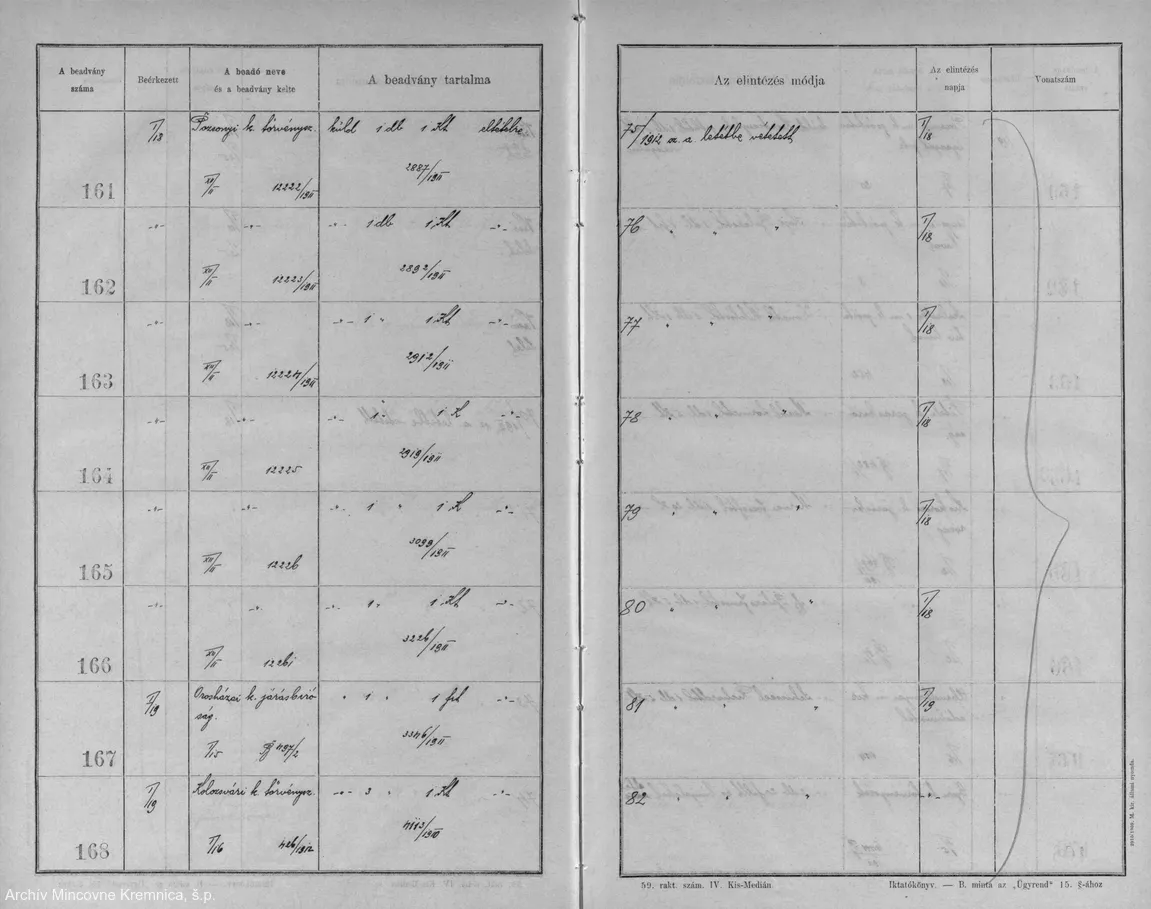 A beadvány száma
Beérkezett
A beadó neve és a beadvány kelte
A beadvány tartalma
Az elintézés módja
Az elintézés napja
Vonatszám
I/18 Pozsonyi k. törvénysz. küld 1 db 1 Kt eltételre 75/1912 sz. a. letétbe vétetett I/18
161 XII/11 12222/1911 2887/1911
-„- 1 db 1 Kt -„- 76 „ „ „ I/18
162 XII/11 12223/1911 2892/1911
-„- -„- -„- 1 „ 1 Kt -„- 77 „ „ „ I/18
163 XII/11 12224/1911 2912/1911
1 1 K -„- 78 „ „ „ I/18
164 XII/11 12225 2919/1911
-„- -„- -„- 1 „ 1 K -„- 79 „ „ „ I/18
165 XII/11 12226 3099/1911
-„- -„- -„- 1 „ 1 Kt -„- 80 „ I/18
166 XII/11 12261 3226/1911
I/19 Orosházai k. járásbiró- „ 1 „ 1 frt „ 81 „ „ „ I/19
ság.
167 I/15 497/2 3346/1911
I/19 Kolozsvári k. törvénysz. -„- 3 „ 1 Kt -„- 82 -„-
168 I/16 426/1912 4113/1910
59. rakt. szám. IV. Kis-Medián.
Iktatókönyv. — B. minta az „Ügyrend" 15. §-ához
M. kir. állami nyomda.
Archív Mincovne Kremnica, š.p.